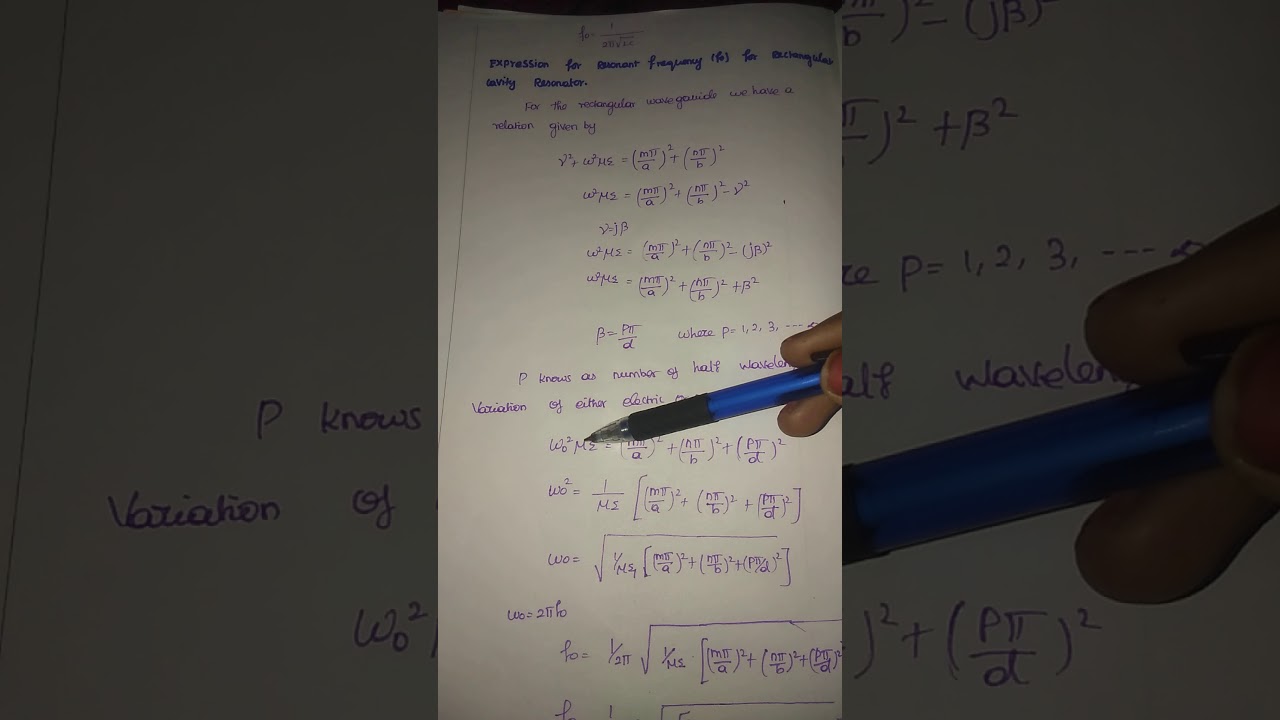 f₀ = 1/2π√LC
Expression for Resonant frequency (f₀) for Rectangular
cavity Resonator.
For the rectangular waveguide we have a
relation given by
γ² + ω²με = (mπ/a)² + (nπ/b)²
ω²με = (mπ/a)² + (nπ/b)² - γ²
γ = jβ
ω²με = (mπ/a)² + (nπ/b)² - (jβ)²
ω²με = (mπ/a)² + (nπ/b)² + β²
β = pπ/d where p = 1, 2, 3, ----
P knows as number of half
Variation of either electric
ω₀²με = (mπ/a)² + (nπ/b)² + (pπ/d)²
ω₀² = 1/με [(mπ/a)² + (nπ/b)² + (pπ/d)²]
ω₀ = √1/με [(mπ/a)² + (nπ/b)² + (pπ/d)²]
ω₀ = 2πf₀
f₀ = 1/2π √1/με [(mπ/a)² + (nπ/b)² + (pπ/d)²